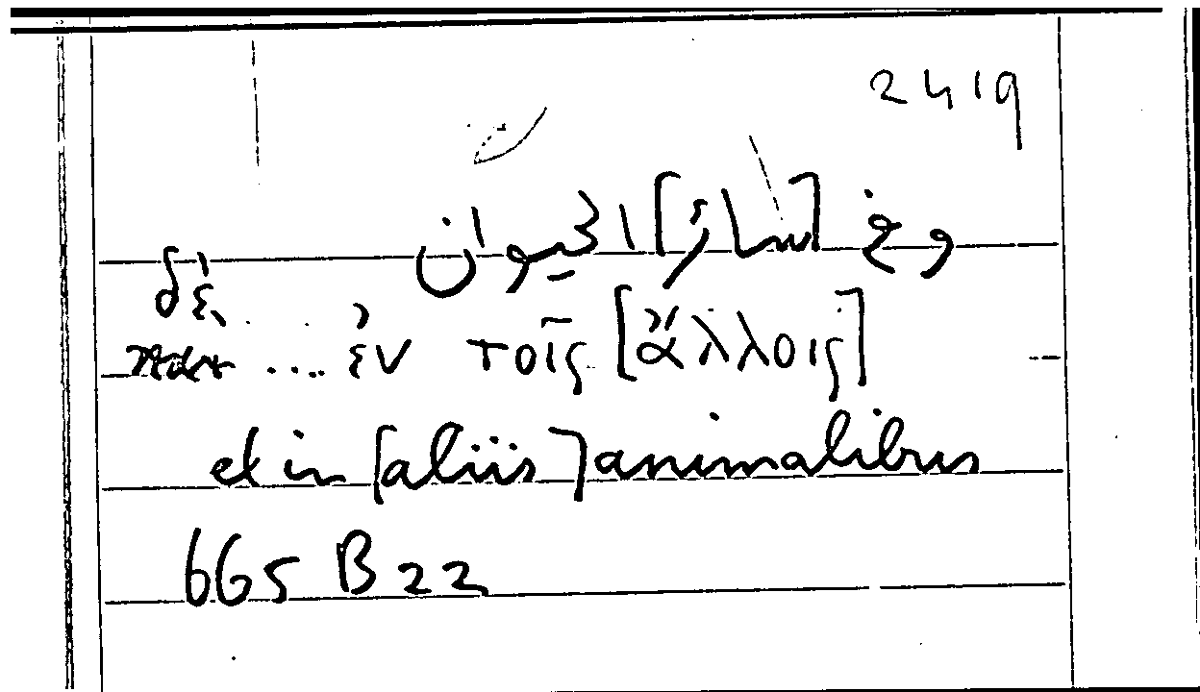 2419
وفي [سائر] الحيوان
δὲ
.... ἐν τοῖς [ἄλλοις]
et in [aliis] animalibus
665 B 22